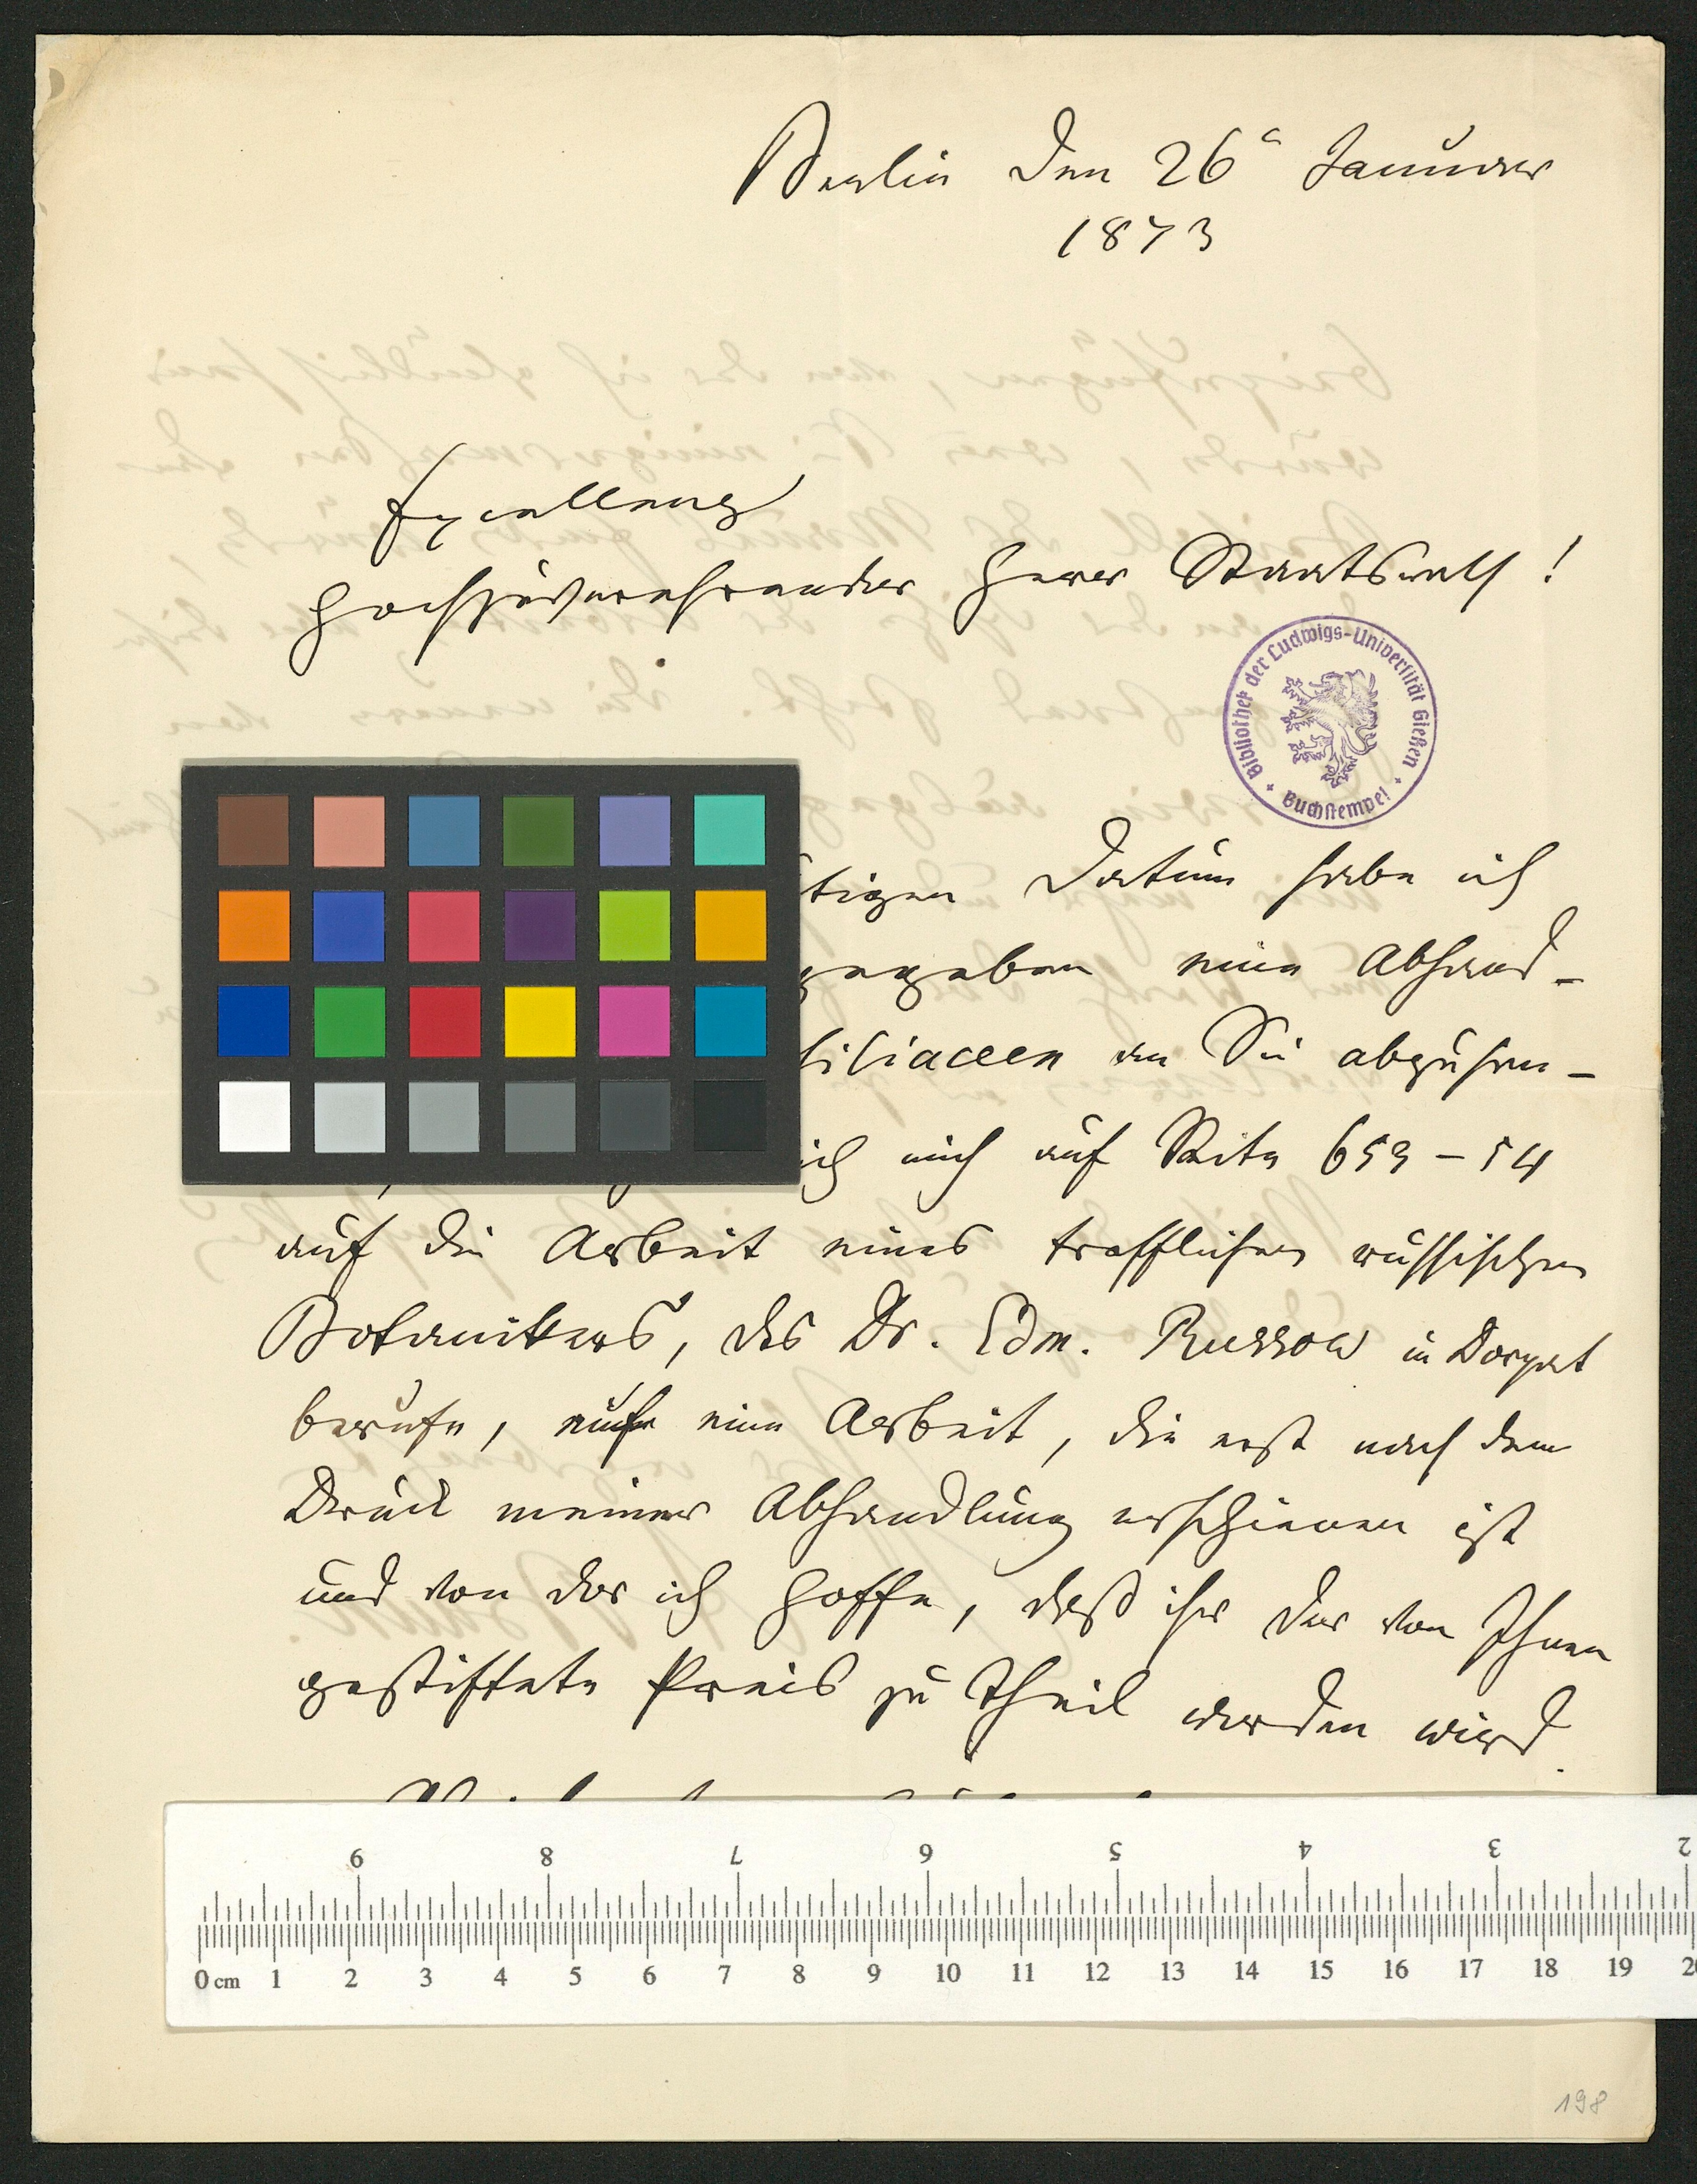 Berlin den 26ⁿ Januar
1873
Excellenz
Hochzuverehrender Herr Staatsrath!
Bibliothek der Ludwigs-Universität Gießen
Buchstempel
tigen Datum habe ich
gegeben eine Abhand-
siliaceen an Sie abzusen-
ich mich auf Seite 653-54
auf die Arbeit eines trefflichen russischen
Botanikers, des Dr. Edm. Russow in Dorpat
berufe, eine Arbeit, die erst nach dem
Druck meiner Abhandlung erschienen ist
und von der ich hoffe, daß ihr der von Ihnen
gestiftete Preis zu Theil werden wird.
9 8 7 6 5 4 3 2
0 cm 1 2 3 4 5 6 7 8 9 10 11 12 13 14 15 16 17 18 19
198